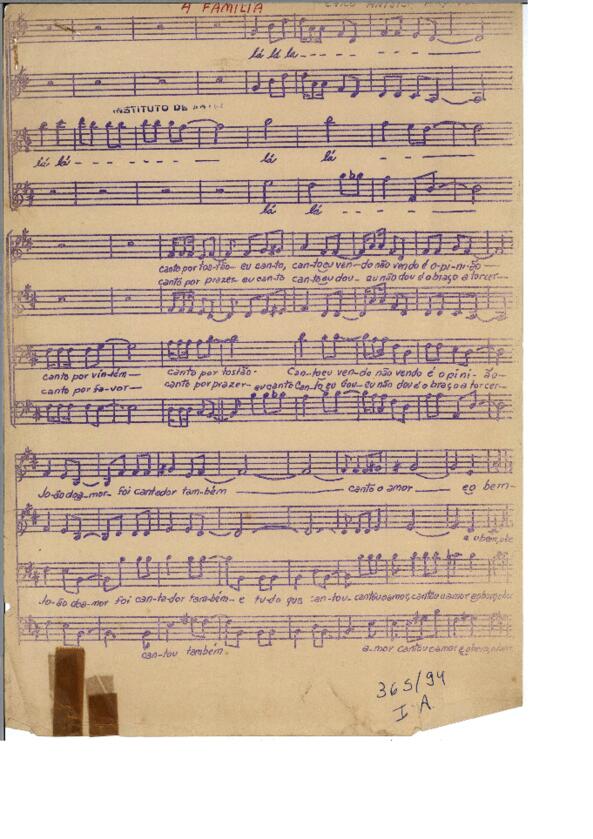 A FAMILIA
lá lá la
INSTITUTO DE
lá lá lá lá
lá lá
canto por tostão- eu canto, can-to eu ven-do não vendo é o-pi-ni-ão
canto por prazer eu canto can-to eu dou- eu não dou é o braço a torcer
canto por vin-tém canto por tostão- Can-to eu ven-do não vendo é o pi ni- ão-
canto por fa-vor- canto por prazer- eu canto Can-to eu dou- eu não dou é o braço a torcer-
Jo-ão doa-mor- foi cantador tam-bém canto o amor eo bem-
Jo-ão doa-mor foi can-ta-dor tam-bém- e tu-do que can-tou-
can-tou também. a-mor cantou o amor
365/94
I A